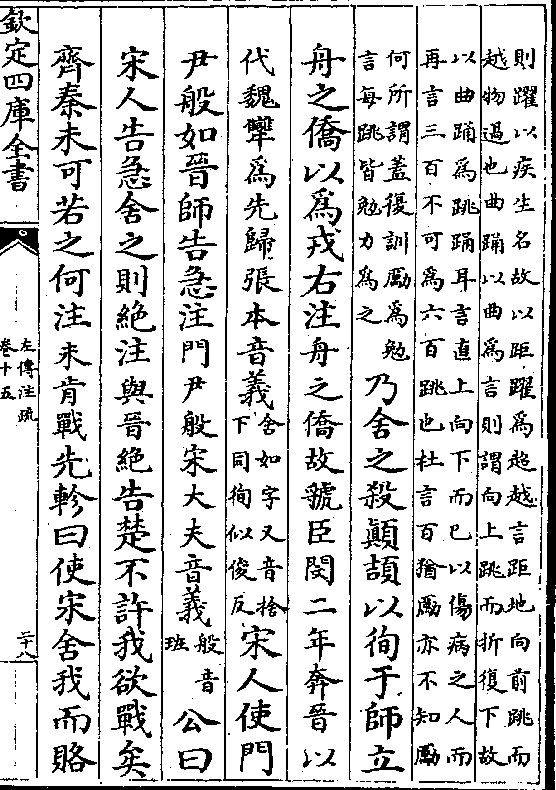 則躍以疾生名故以距躍為超越言距地向前跳而
越物過也曲踊以曲為言則謂向上跳而折復下故
以曲踊為跳踊耳言直上向下而已以傷病之人而
再言三百不可為六百跳也杜言百猶勵亦不知勵
何所謂蓋復訓勵為勉
言每跳皆勉力為之
乃舍之殺顛頡以徇于師立
舟之僑以為戎右注舟之僑故虢臣閔二年奔晉以
代魏犨為先歸張本音義
舍如字又音捨
下同徇似俊反
宋人使門
尹般如晉師告急注門尹般宋大夫音義
般音
班
公曰
宋人告急舍之則絶注與晉絶告楚不許我欲戰矣
齊秦未可若之何注未肯戰先軫曰使宋舍我而賂
欽定四庫全書
左傳注疏
卷十五
二十八